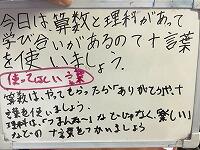 今日は算数と理科があって
学び合いがあるので十言葉
を使いましょう。
使ってほしい言葉
算数は、やってもらったら「ありがとう」や十
言葉を使いましょう。
理科は「つまんねー」などじゃなく「楽しい」
などの十言葉をつかいましょう